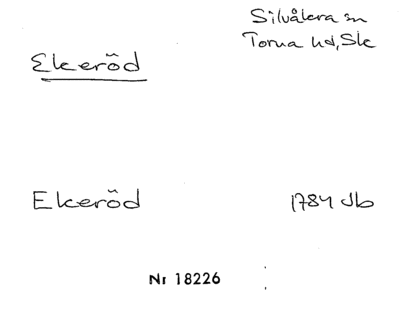 Silvåkra sn
Torna hd, Sk
Ekeröd
Ekeröd 1784 Jb
Nr 18226